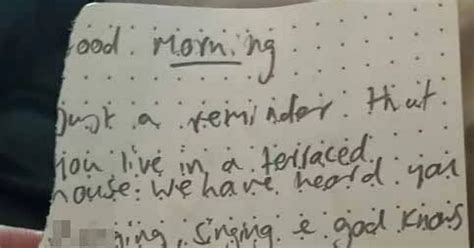 ood morning
just a reminder that
you live in a terraced
house. we have heard you
ging, singing & god knows